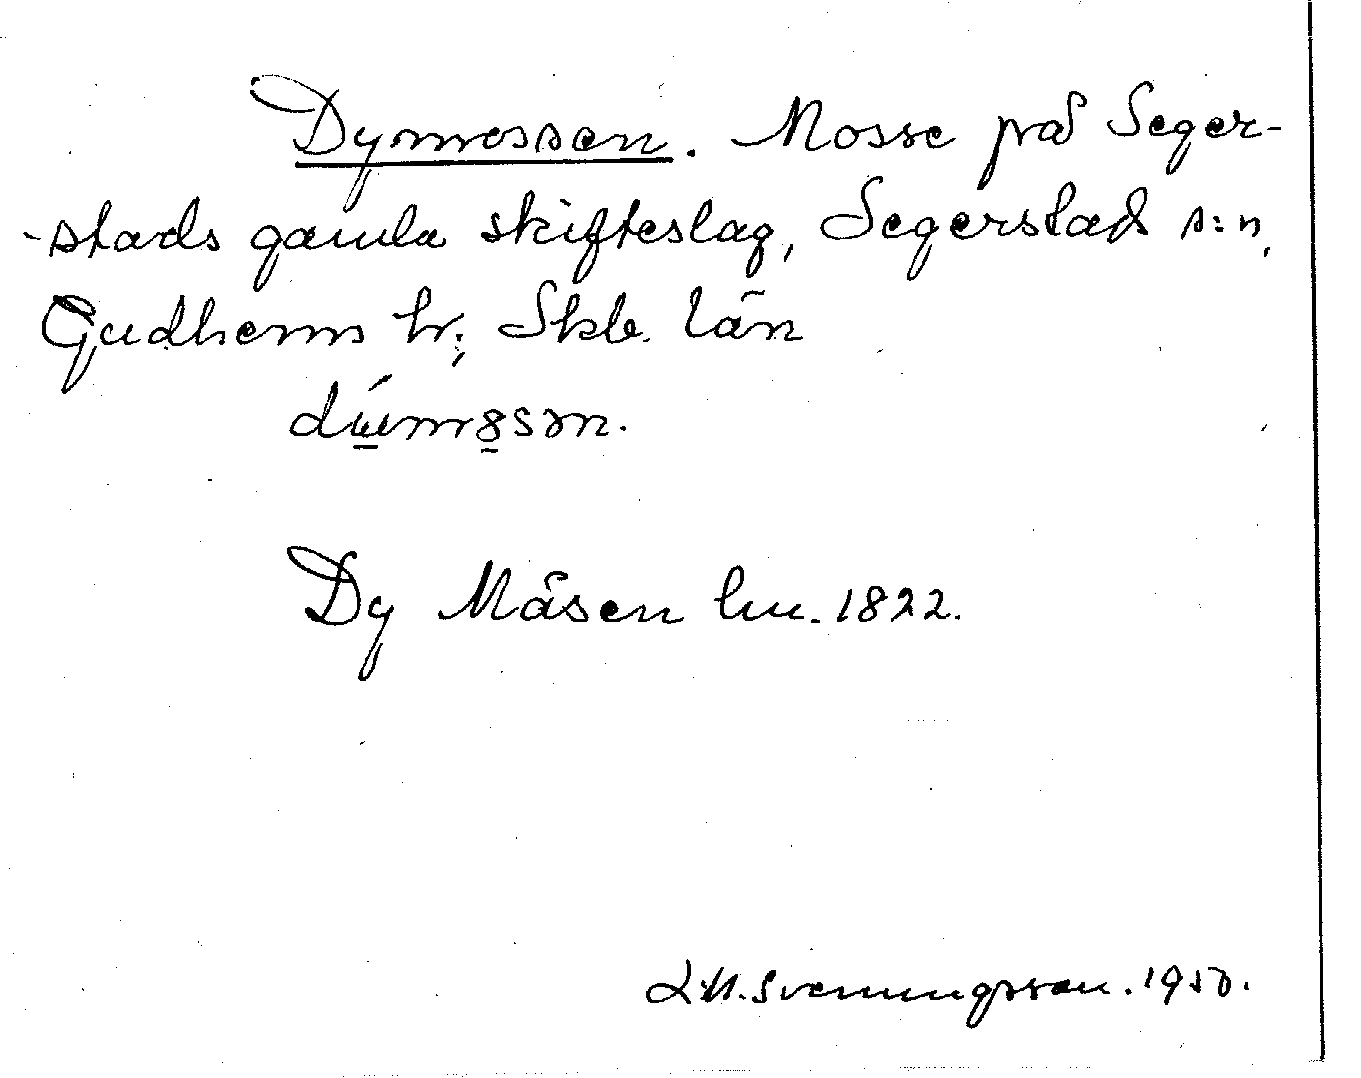 Dymossen. Mosse på Seger-
-stads gamla skifteslag, Segerstads s:n,
Gudhems hr; Skb. län
Dy Måsen lm. 1822.
Svenungsson. 1950.